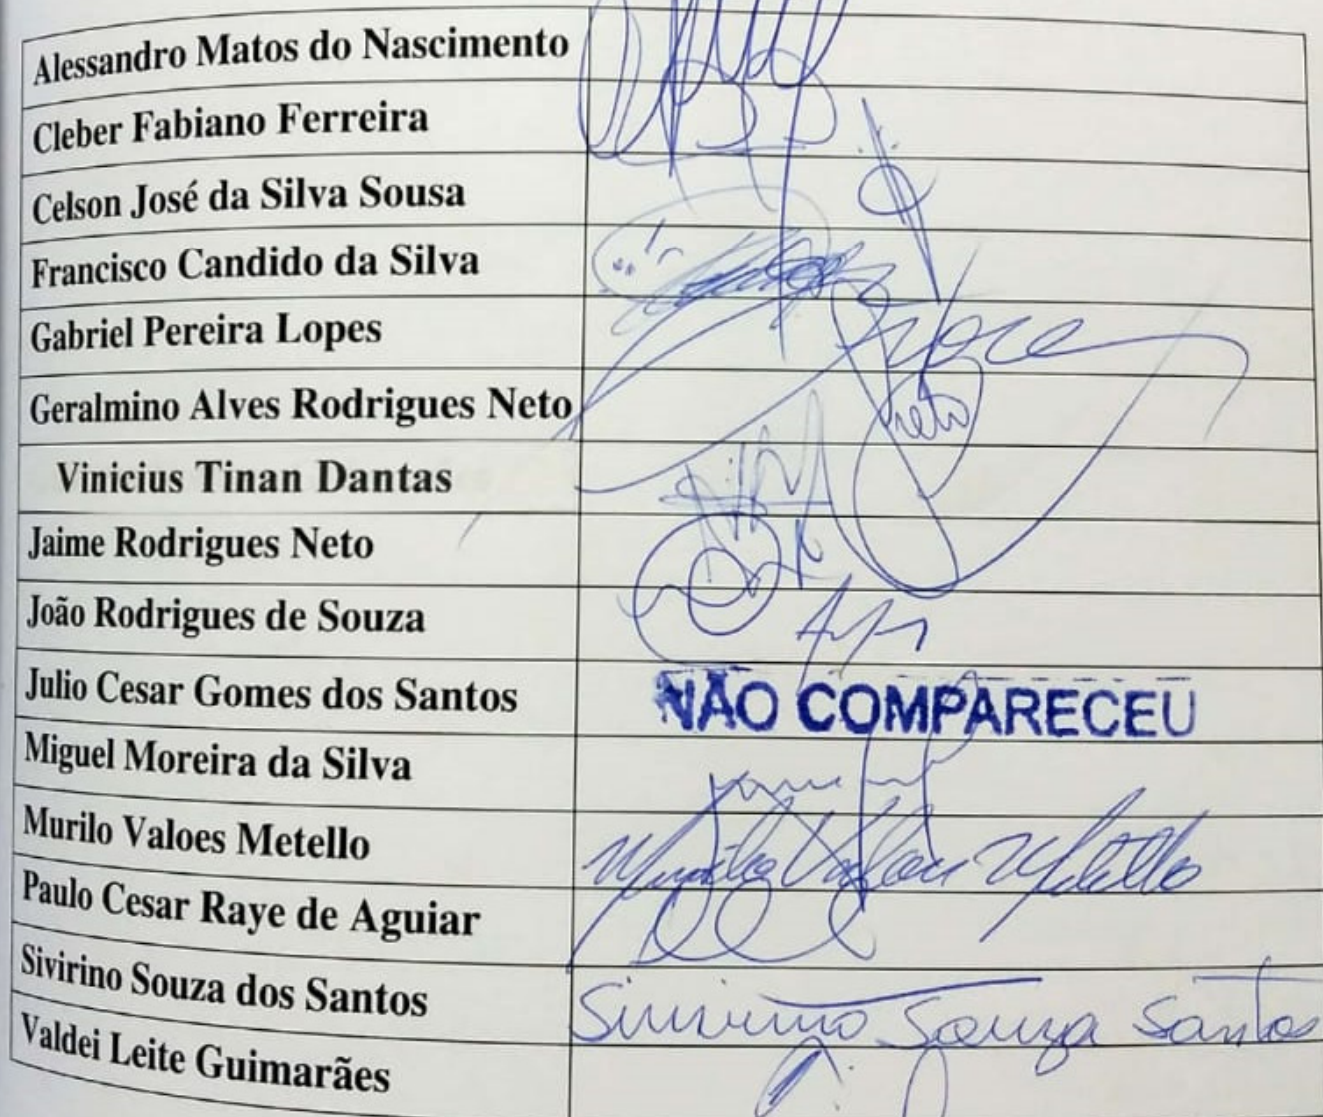 Alessandro Matos do Nascimento
Cleber Fabiano Ferreira
Celson José da Silva Sousa
Francisco Candido da Silva
Gabriel Pereira Lopes
Geralmino Alves Rodrigues Neto
Neto
Vinicius Tinan Dantas
Jaime Rodrigues Neto
João Rodrigues de Souza
Julio Cesar Gomes dos Santos
NÃO COMPARECEU
Miguel Moreira da Silva
Murilo Valoes Metello
Murilo Valoes Metello
Paulo Cesar Raye de Aguiar
Sivirino Souza dos Santos
Sivirino Souza Santos
Valdei Leite Guimarães